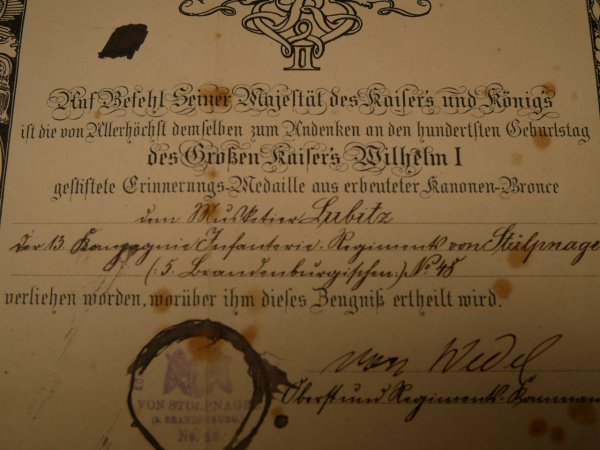 W
II
Auf Befehl Seiner Majestät des Kaisers und Königs
ist die von Allerhöchst demselben zum Andenken an den hundertsten Geburtstag
des Großen Kaisers Wilhelm I
gestiftete Erinnerungs-Medaille aus erbeuteter Kanonen-Bronce
dem Musketier Lubitz
der 13. Kompagnie Infanterie-Regiments von Stülpnage
(5. Brandenburgischen) No. 48
verliehen worden, worüber ihm dieses Zeugniß ertheilt wird.
von Wedel
Oberst und Regiments-Komman
VON STÜLPNAGE
(5. BRANDENBURG.
No. 48